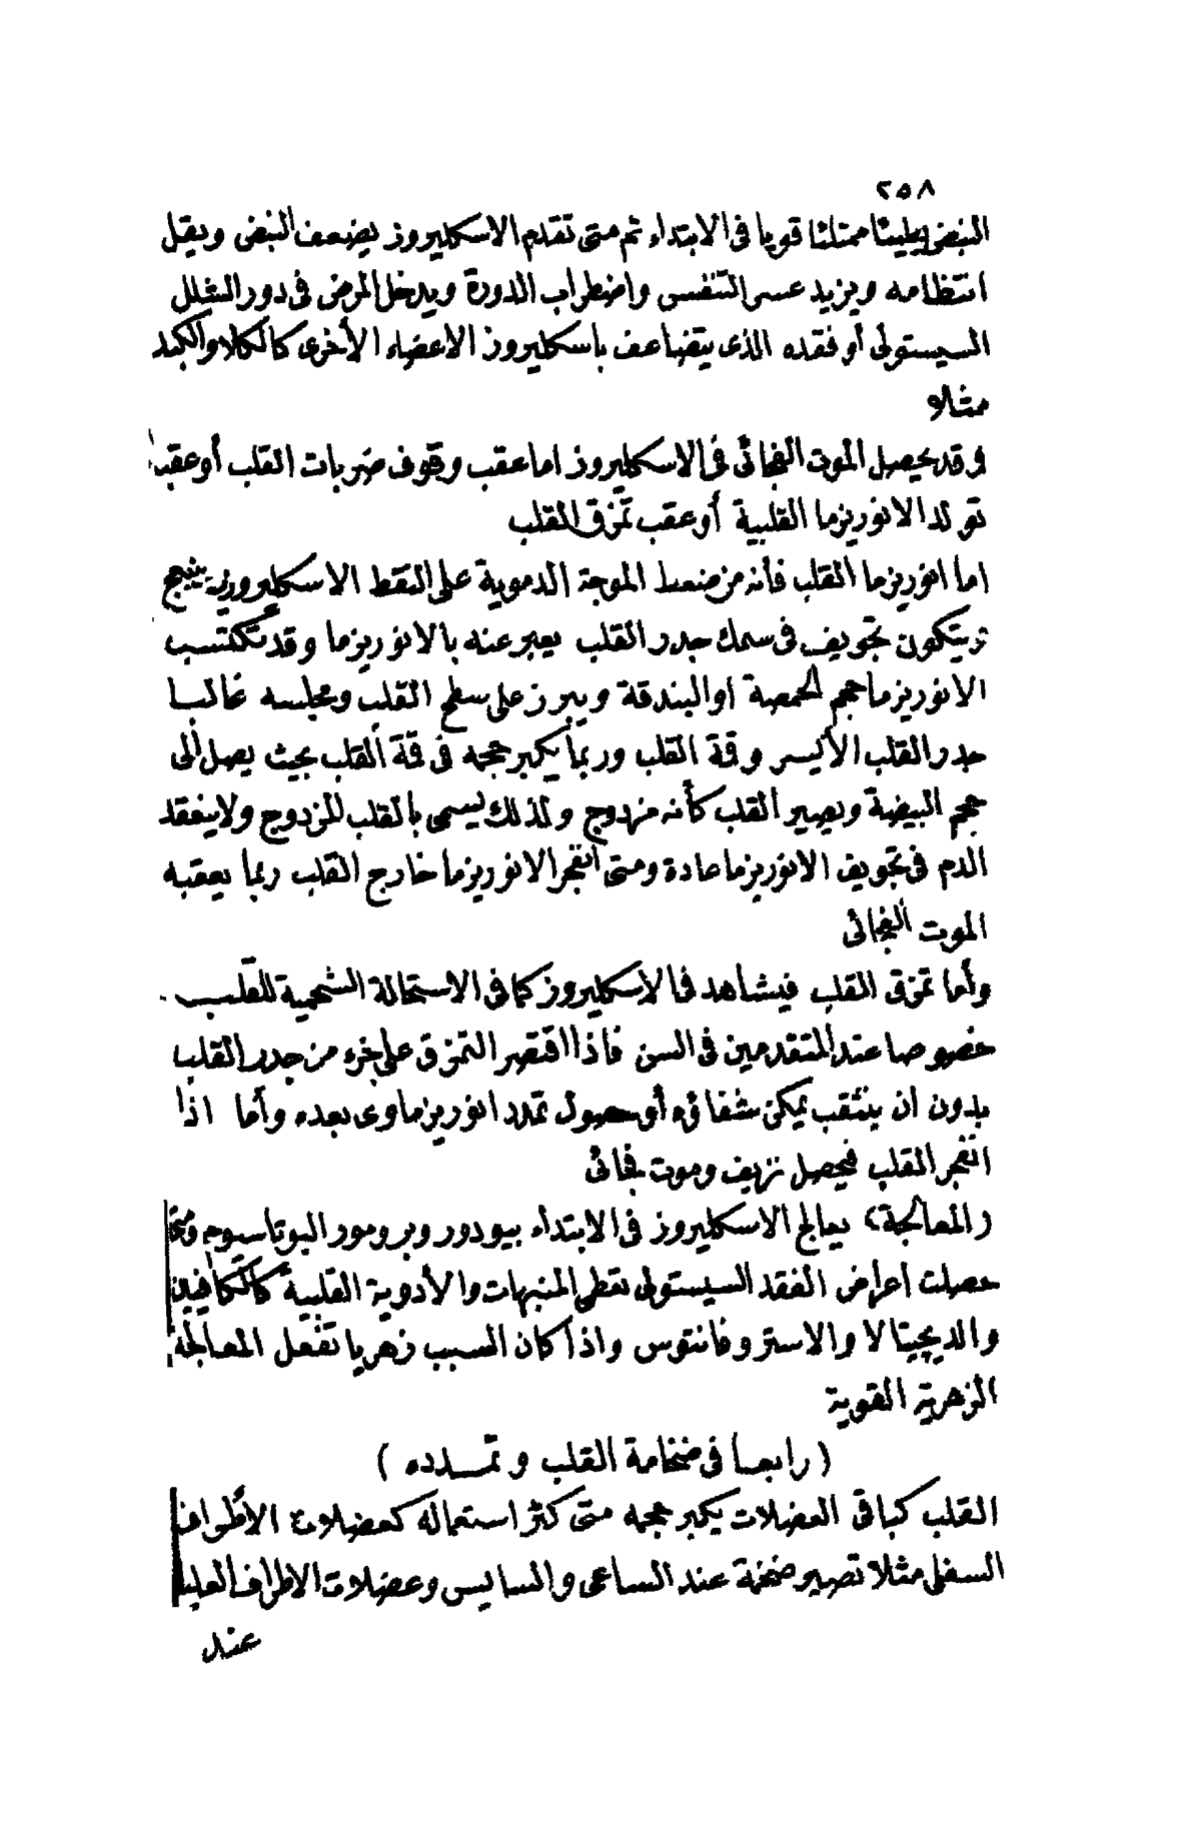 ٢٥٨
النبض بطيئا ممتلئا قويا فى الابتداء ثم متى تقدم الاسكليروز يضعف النبض ويقل
انتظامه ويزيد عسر التنفس واضطراب الدورة ويدخل المرض فى دور الشلل
السيستولى أو فقده الذى يتضاعف باسكليروز الاعضاء الأخرى كالكلا والكبد
مثلا
وقد يحصل الموت الفجائى فى الاسكليروز اما عقب وقوف ضربات القلب أو عقب
تولد الانوريزما القلبية أو عقب تمزق القلب
اما انوريزما القلب فأنه من ضغط الموجة الدموية على النقط الاسكليروزية ينبعج
ويتكون تجويف فى سمك جدر القلب يعبر عنه بالانوريزما وقد تكتسب
الانوريزما حجم الحمصة او البندقة ويبرز على سطح القلب ومجلسه غالبا
جدر القلب الأيسر وقة القلب وربما يكبر حجمه فى قة القلب بحيث يصل الى
حجم البيضة ويصير القلب كأنه مزدوج ولذلك يسمى بالقلب المزدوج ولا ينعقد
الدم فى تجويف الانوريزما عادة ومتى انفجر الانوريزما خارج القلب ربما يعقبه
الموت الفجائى
وأما تمزق القلب فيشاهد فى الاسكليروز كما فى الاستحالة الشحمية للقلب
خصوصا عند المتقدمين فى السن فاذا اقتصر التمزق على جزء من جدر القلب
بدون ان ينثقب يمكن شفاؤه أو حصول تمدد انوريزماوى بعده وأما اذا
انفجر القلب فيحصل نزيف وموت فجائى
(المعالجة) يعالج الاسكليروز فى الابتداء بيودور وبرومور البوتاسيوم ومتى
حصلت اعراض الفقد السيستولى تعطى المنبهات والأدوية القلبية كالكافيين
والديجيتالا والاستروفانتوس واذا كان السبب زهريا تفعل المعالجة
الزهرية القوية
(رابعا فى ضخامة القلب وتمدده)
القلب كباقى العضلات يكبر حجمه متى كثر استعماله كعضلات الأطراف
السفلى مثلا تصير ضخمة عند الساعى والسايس وعضلات الاطراف العليا
عند